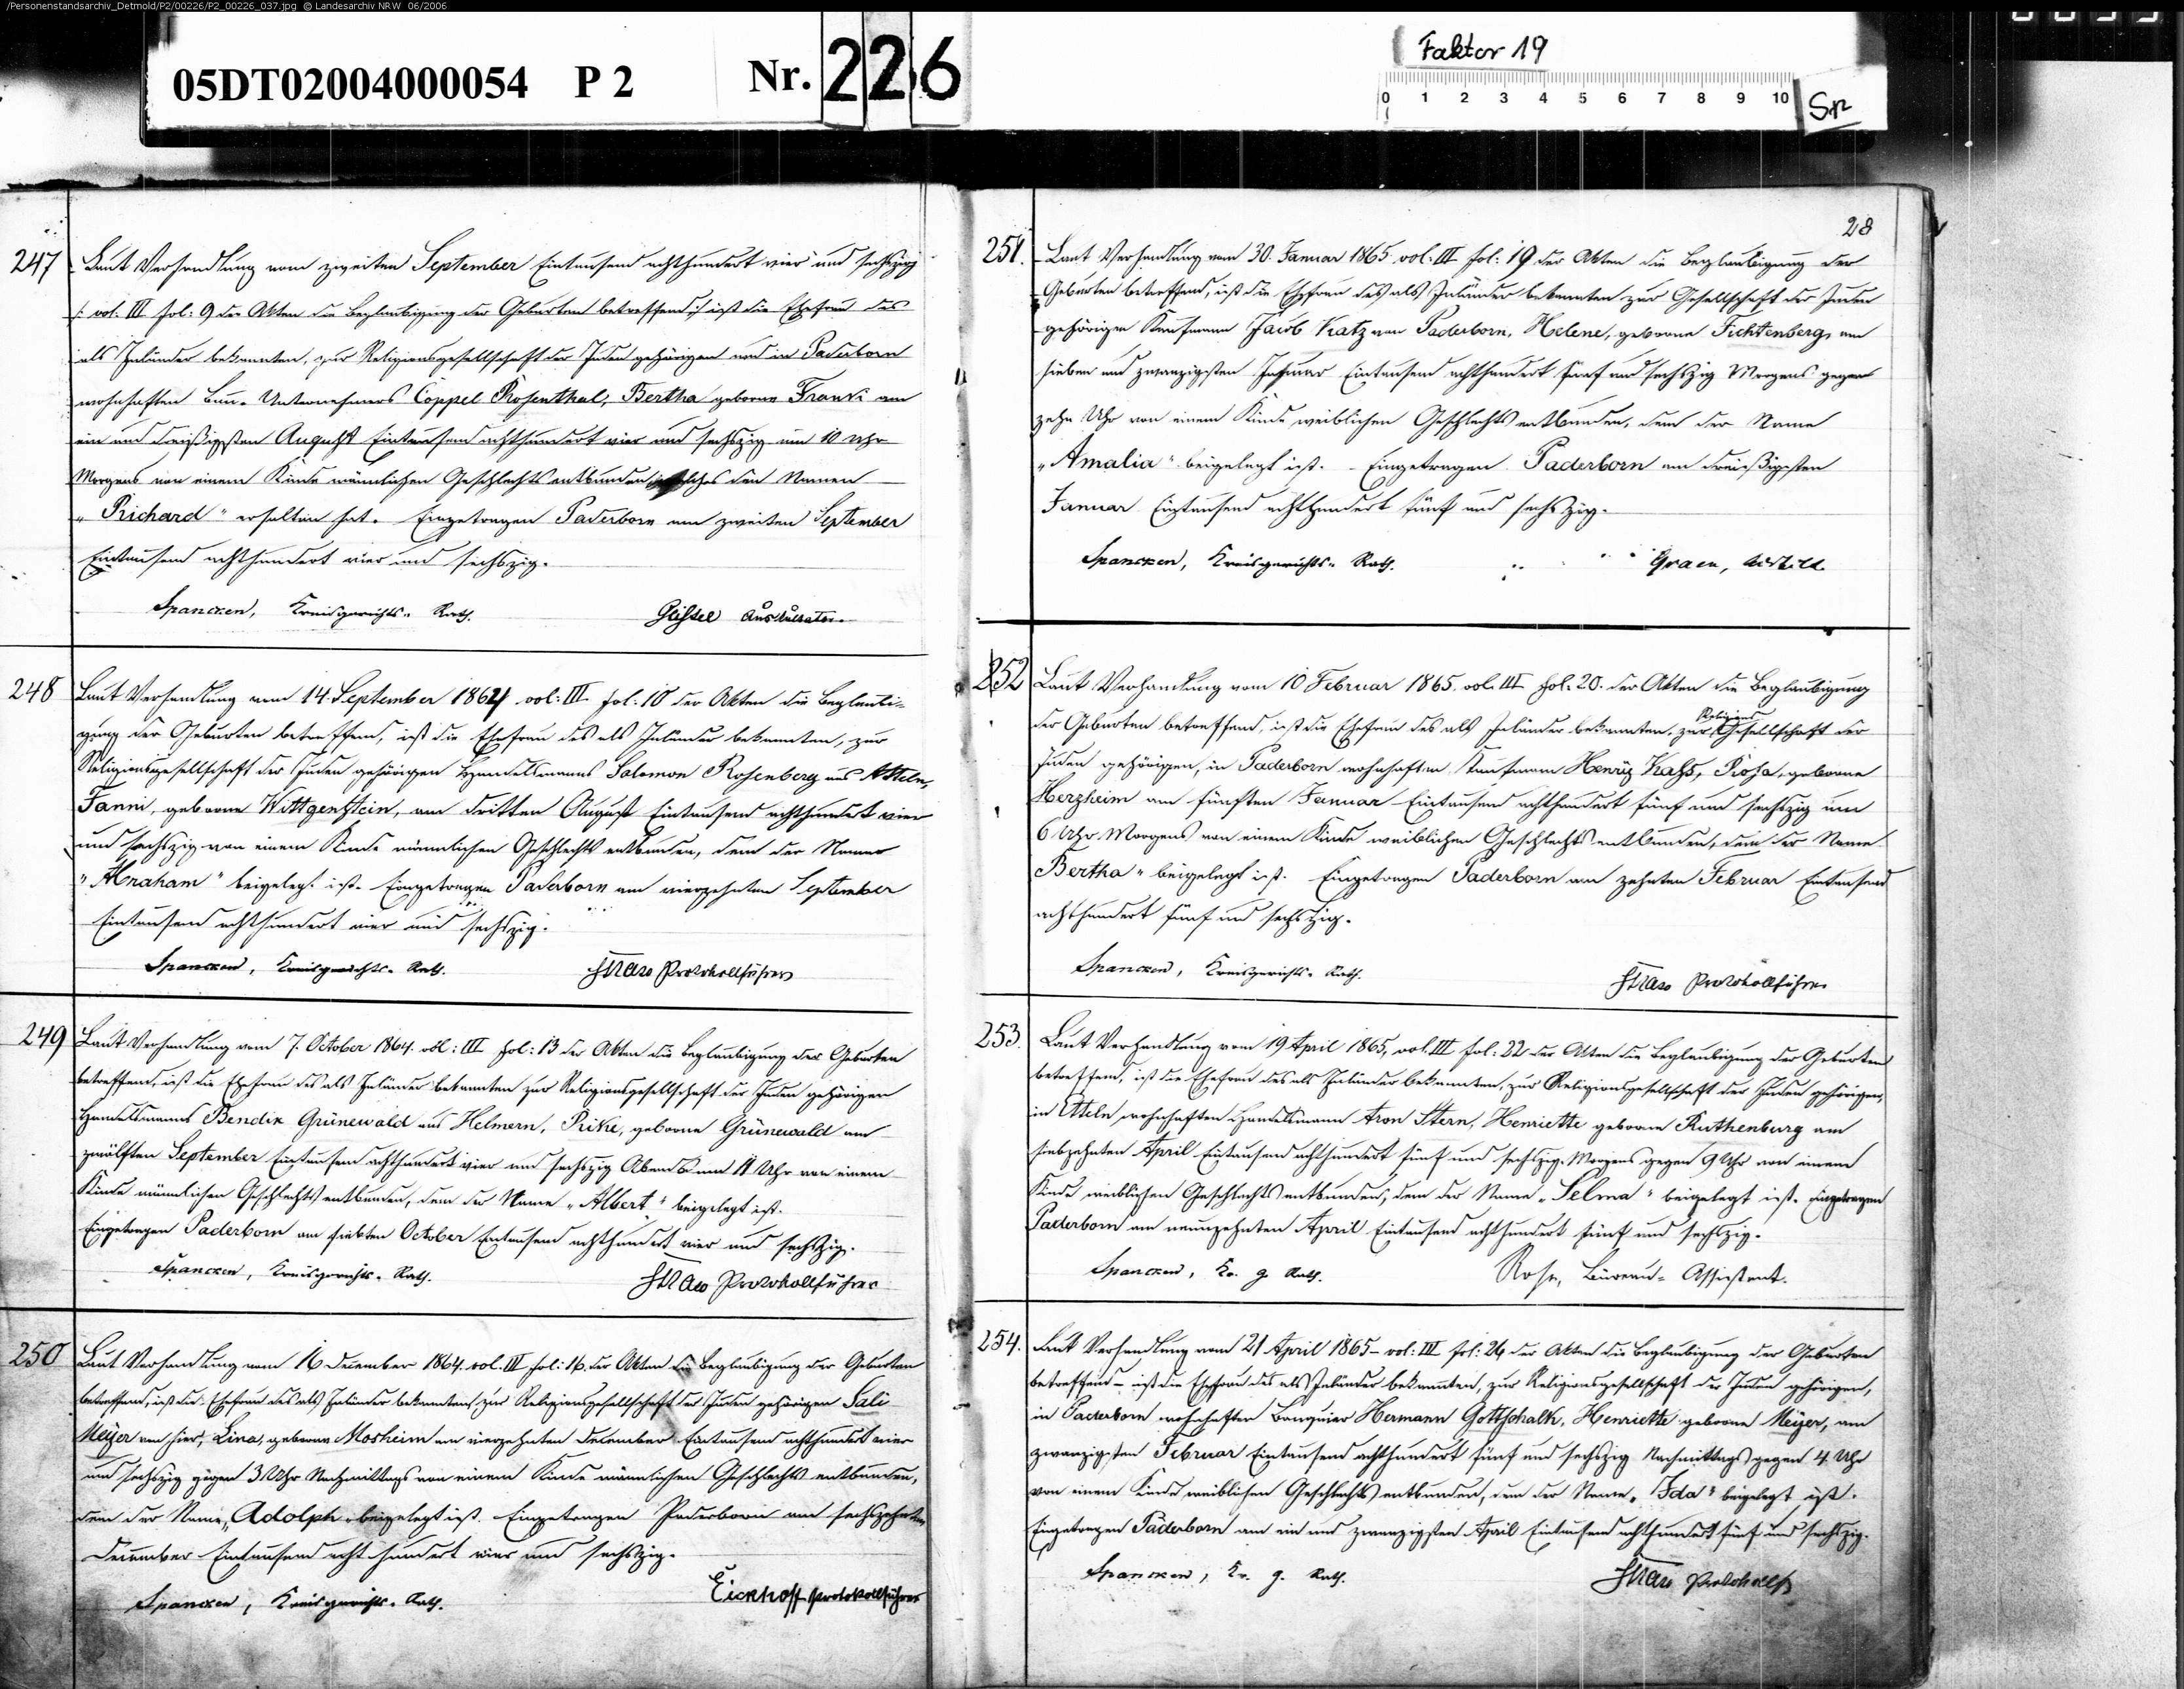 /Personenstandsarchiv_Detmold/P2/00226/P2_00226_037.jpg © Landesarchiv NRW 06/2006
05DT02004000054 P 2 Nr. 226
Faktor 19
0 1 2 3 4 5 6 7 8 9 10
Sp
247 Laut Verhandlung vom zweiten September Eintausend achthundert vier und sechszig
/: vol. III fol: 9 der Akten die Beglaubigung der Geburten betreffend :/ ist die Ehefrau des
als Inländer bekannten, zur Religionsgesellschaft der Juden gehörigen und in Paderborn
wohnhaften Bau-Unternehmers Coppel Rosenthal, Bertha geborne Frank am
ein und dreißigsten August Eintausend achthundert vier und sechszig um 10 Uhr
Morgens von einem Kinde männlichen Geschlechts entbunden, welches den Namen
„Richard" erhalten hat. Eingetragen Paderborn am zweiten September
Eintausend achthundert vier und sechszig.
Spancken, Kreisgerichts-Rath. Auskultator.
248 Laut Verhandlung vom 14 September 1864 vol: III fol: 10 der Akten die Beglaubi-
gung der Geburten betreffend, ist die Ehefrau des als Inländer bekannten, zur
Religionsgesellschaft der Juden gehörigen Handelsmanns Salomon Rosenberg aus Atteln,
Fanni, geborne Wittgenstein, am dritten August Eintausend achthundert vier
und sechszig von einem Kinde männlichen Geschlechts entbunden, dem der Name
„Abraham" beigelegt ist. Eingetragen Paderborn am vierzehnten September
Eintausend achthundert vier und sechszig.
Spancken, Kreisgerichts-Rath. Protokollführer
249 Laut Verhandlung vom 7. October 1864. vol: III fol: 13 der Akten die Beglaubigung der Geburten
betreffend, ist die Ehefrau des als Inländer bekannten zur Religionsgesellschaft der Juden gehörigen
Handelsmanns Bendix Grünewald aus Helmern, Rike, geborne Grünewald am
zwölften September Eintausend achthundert vier und sechszig Abends um 11 Uhr von einem
Kinde männlichen Geschlechts entbunden, dem der Name „Albert" beigelegt ist.
Eingetragen Paderborn am siebten October Eintausend achthundert vier und sechszig.
Spancken, Kreisgerichts-Rath. Protokollführer
250 Laut Verhandlung vom 16 December 1864. vol. III fol: 16. der Akten die Beglaubigung der Geburten
betreffend, ist die Ehefrau des als Inländer bekannten, zur Religionsgesellschaft der Juden gehörigen Sali
Meyer von hier, Lina, geborne Mosheim am vierzehnten December Eintausend achthundert vier
und sechszig gegen 3 Uhr Nachmittags von einem Kinde männlichen Geschlechts entbunden,
dem der Name „Adolph" beigelegt ist. Eingetragen Paderborn am sechszehnten
December Eintausend acht hundert vier und sechszig.
Spancken, Kreisgerichts-Rath. Eickhoff Protokollführer
28
251. Laut Verhandlung vom 30. Januar 1865 vol: III fol: 19 der Akten die Beglaubigung der
Geburten betreffend, ist die Ehefrau des als Inländer bekannten zur Gesellschaft der Juden
gehörigen Kaufmann Jacob Katz von Paderborn, Helene, geborne Fichtenberg, am
sieben und zwanzigsten Januar Eintausend achthundert fünf und sechszig Morgens gegen
zehn Uhr von einem Kinde weiblichen Geschlechts entbunden, dem der Name
„Amalia" beigelegt ist. - Eingetragen Paderborn am dreißigsten
Januar Eintausend achthundert fünf und sechszig.
Spancken, Kreisgerichts-Rath.
252 Laut Verhandlung vom 10 Februar 1865. vol. III fol: 20. der Akten die Beglaubigung
der Geburten betreffend, ist die Ehefrau des als Inländer bekannten, zur Religions Gesellschaft der
Juden gehörigen, in Paderborn wohnhaften Kaufmann Rosa, geborne
Herzheim am fünften Januar Eintausend achthundert fünf und sechszig um
6 Uhr Morgens von einem Kinde weiblichen Geschlechts entbunden, dem der Name
Bertha" beigelegt ist. Eingetragen Paderborn am zehnten Februar Eintausend
achthundert fünf und sechszig.
Spancken, Kreisgerichts-Rath. Protokollführer
253. Laut Verhandlung vom 19 April 1865, vol. III fol: 22 der Akten die Beglaubigung der Geburten
betreffend, ist die Ehefrau des als Inländer bekannten, zur Religionsgesellschaft der Juden gehörigen,
in Atteln wohnhaften Handelsmann Aron Stern, Henriette geborne Ruthenburg am
siebzehnten April Eintausend achthundert fünf und sechszig Morgens gegen 9 Uhr von einem
Kinde weiblichen Geschlechts entbunden, dem der Name „Selma" beigelegt ist. Eingetragen
Paderborn am neunzehnten April Eintausend achthundert fünf und sechszig.
Spancken, Kr. g. Rath. Rose, Büreau-Assistent.
254. Laut Verhandlung vom 21 April 1865 - vol: III fol: 24 der Akten die Beglaubigung der Geburten
betreffend - ist die Ehefrau des als Inländer bekannten, zur Religionsgesellschaft der Juden gehörigen,
in Paderborn wohnhaften Banquier Hermann Gottschalk, Henriette geborne Meyer, am
zwanzigsten Februar Eintausend achthundert fünf und sechszig Nachmittags gegen 4 Uhr
von einem Kinde weiblichen Geschlechts entbunden, dem der Name „Ida" beigelegt ist.
Eingetragen Paderborn am ein und zwanzigsten April Eintausend achthundert fünf und sechszig.
Spancken, Kr. g. Rath.